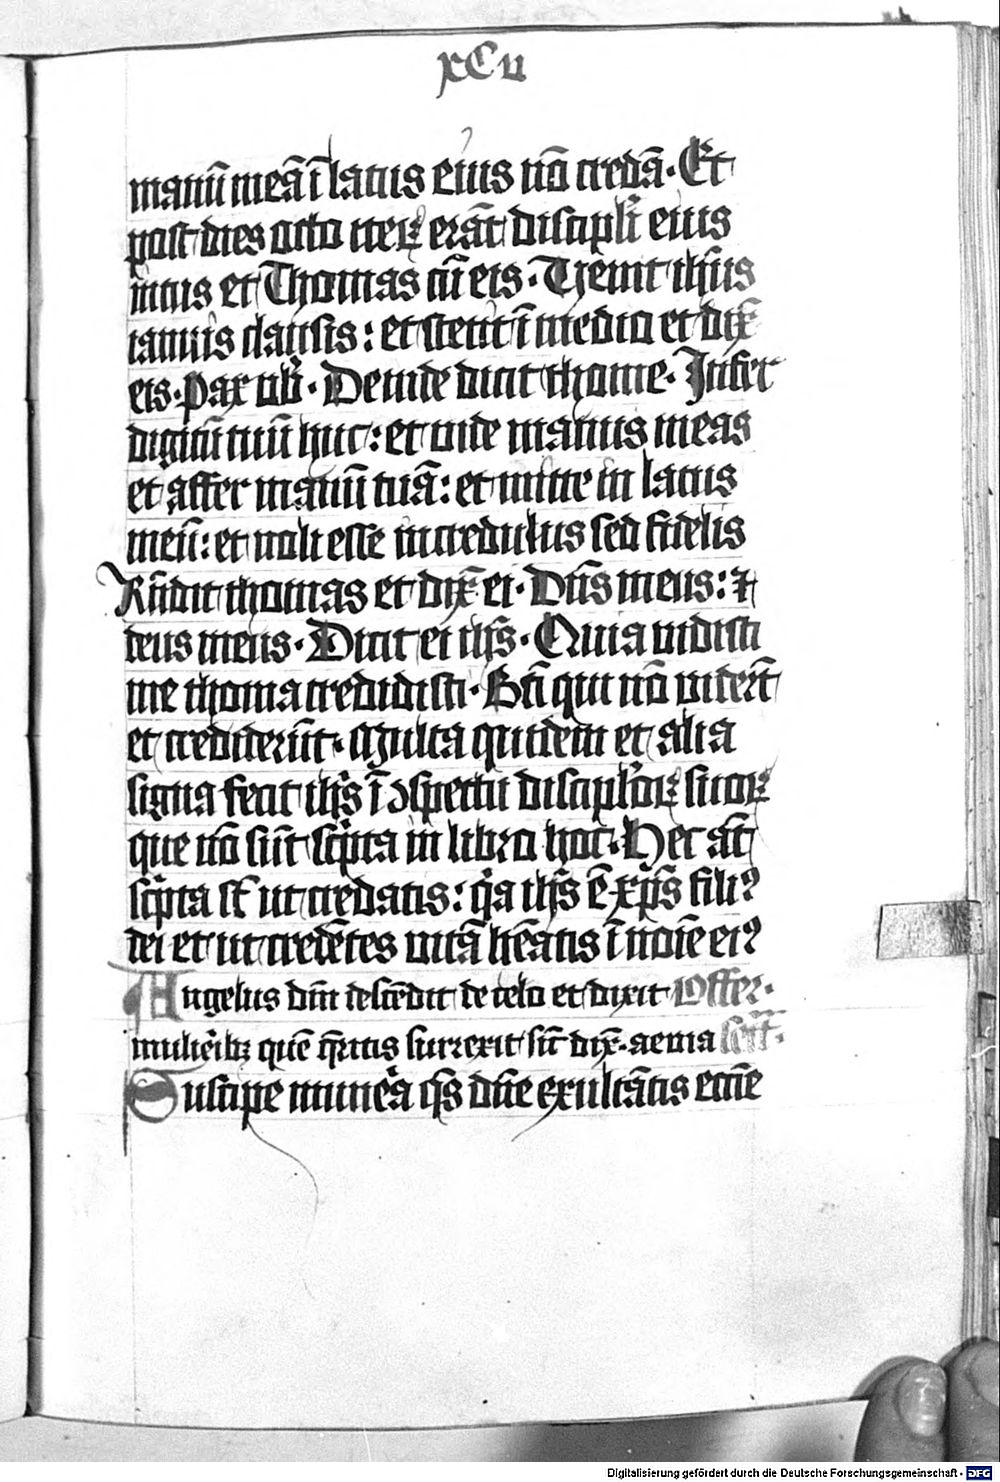 xCv
manū meā ī latus eius nō credā. Et
post dies octo iteꝝ erāt discipli̅ eius
intus et Thomas cū eis. Venit ihūs
ianuis clausis: et stetit ī medio et dix̄
eis. Pax uob̄. Deinde dicit thome. Infer
digitū tuū huc: et uide manus meas
et affer manū tuā: et mitte in latus
meū: et noli esse incredulus sed fidelis
Rn̄dit thomas et dix̄ ei. Dn̄s meus: ⁊
deus meus. Dicit ei ih̄s. Quia uidisti
me thoma credidisti. Bt̄i qui nō uider̄t
et crediderūt. Multa quidem et alia
signa fecit ih̄s ī ↄspectu discipłoꝝ suoꝝ
que nō sūt sc̄pta in libro hoc. Hec āt
sc̄pta st̄ ut credatis: q̄a ih̄s ē xp̄s fili⁹
dei et ut credētes uitā hēatis ī noīe ei⁹
Angelus dn̄i descēdit de celo et dixit Offer.
mulierib⁊ quē q̄ritis surrexit sic̄ dix̄. aeuia Secr̄t.
Suscipe munera q̄s dn̄e exultātis ecc̄e
Digitalisierung gefördert durch die Deutsche Forschungsgemeinschaft - DFG